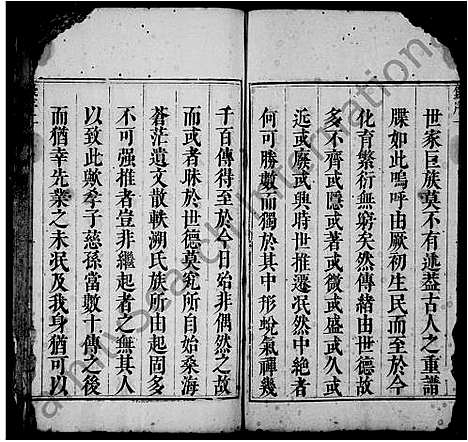 世家巨族莫不有述蓋古人之重譜
牒如此嗚呼由厥初生民而至於今
化育繁衍無窮矣然傳緒由世德故
多不齊或隱或著或微或盛或久或
近或廢或興時世推遷泯然中絶者
何可勝數而獨於其中形蛻氣禪幾
千百傳得至於今日始非偶然之故
而或者昧於世德莫究所自始桑海
蒼茫遺文散軼溯氏族所由起固多
不可强推者豈非繼起者之無其人
以致此歟孝子慈孫當數十傳之後
而猶幸先業之未泯及我身猶可以